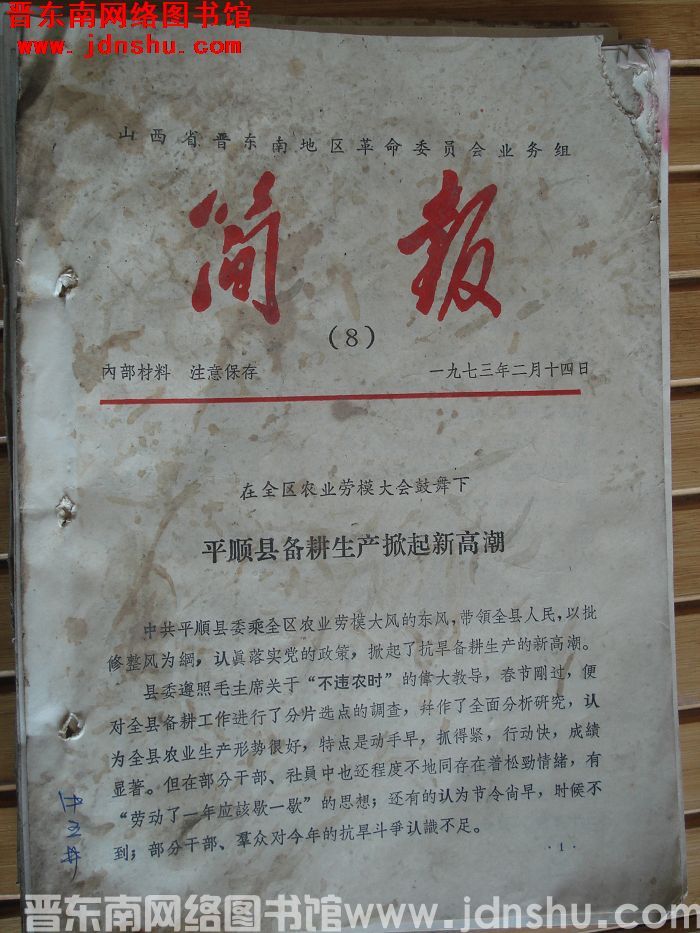 晋东南网络图书馆
www.jdnshu.com
山西省晋东南地区革命委员会业务组
简报
(8)
內部材料 注意保存 一九七三年二月十四日
在全区农业劳模大会鼓舞下
平顺县备耕生产掀起新高潮
中共平顺县委乘全区农业劳模大风的东风,带領全县人民,以批
修整风为綱,认眞落实党的政策,掀起了抗旱备耕生产的新高潮。
县委遵照毛主席关于“不违农时”的偉大教导,春节剛过,便
对全县备耕工作进行了分片选点的調查,幷作了全面分析研究,认
为全县农业生产形势很好,特点是动手早,抓得紧,行动快,成績
显著。但在部分干部、社員中也还程度不地同存在着松勁情緖,有
“劳动了一年应該歇一歇”的思想;还有的认为节令尚早,时候不
到;部分干部、羣众对今年的抗旱斗爭认識不足。
·1·
晋东南网络图书馆www.jdnshu.com